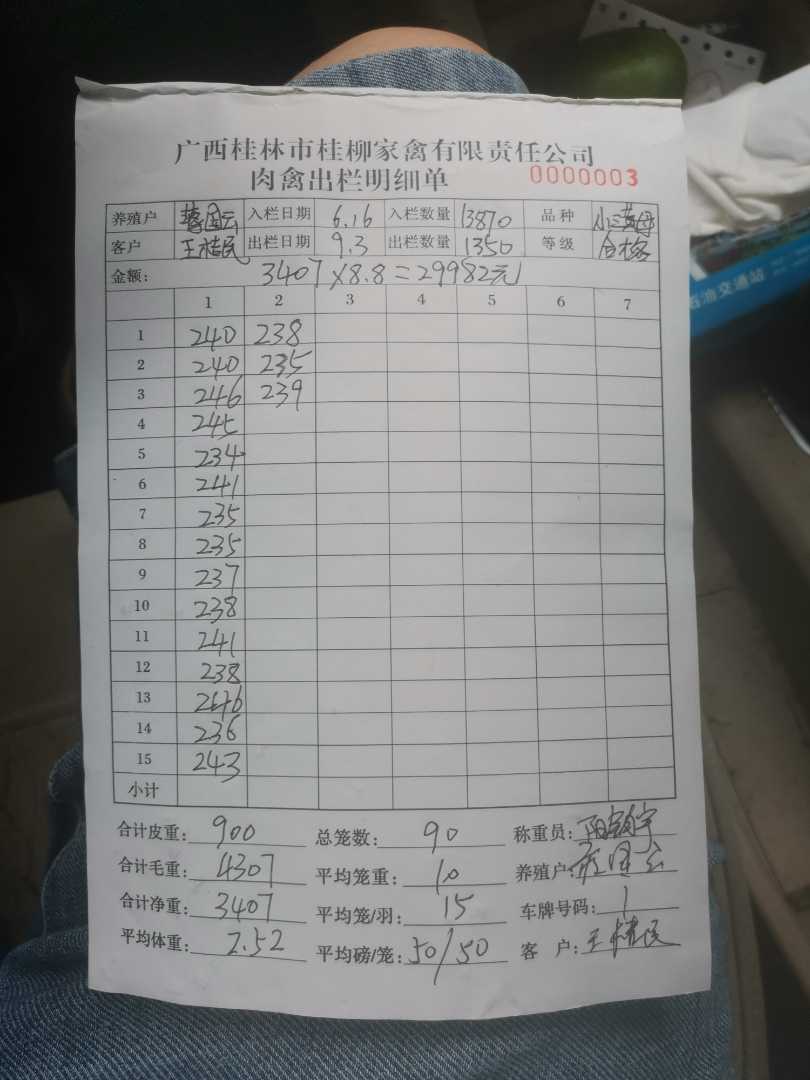 广西桂林市桂柳家禽有限责任公司
肉禽出栏明细单 0000003
养殖户 蒋国云 入栏日期 6.16 入栏数量 13870 品种
客户 王桂民 出栏日期 9.3 出栏数量 1350 等级 合格
金额: 3407×8.8=29982元
1 2 3 4 5 6 7
1 240 238
2 240 235
3 246 239
4 245
5 234
6 241
7 235
8 235
9 237
10 238
11 241
12 238
13 246
14 236
15 243
小计
合计皮重: 900 总笼数: 90 称重员:
合计毛重: 4307 平均笼重: 10 养殖户: 蒋国云
合计净重: 3407 平均笼/羽: 15 车牌号码: 1
平均体重: 2.52 平均磅/笼: 50/50 客户: 王桂民
石油交通站